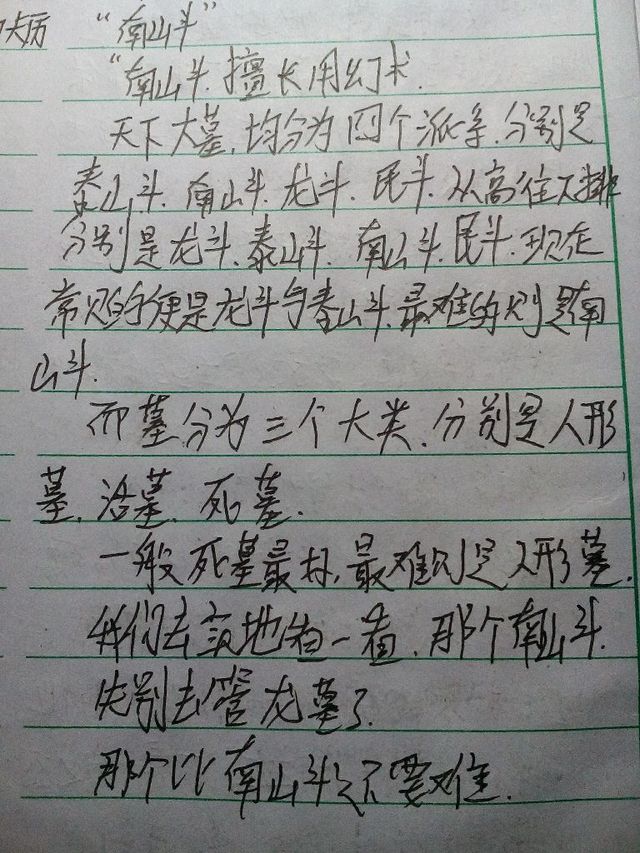 "南山斗"
"南山斗.擅长用幻术.
天下大墓,均分为四个派系.分别是
泰山斗.南山斗.龙斗.民斗.从高往下排
分别是龙斗.泰山斗.南山斗.民斗.现在
常见的便是龙斗与泰山斗.最难的则是南
山斗.
而墓分为三个大类.分别是人形
墓.活墓.死墓.
一般死墓最好,最难则是人形墓.
我们去实地看一看.那个南山斗.
先别去管龙墓了.
那个比南山斗还要难.